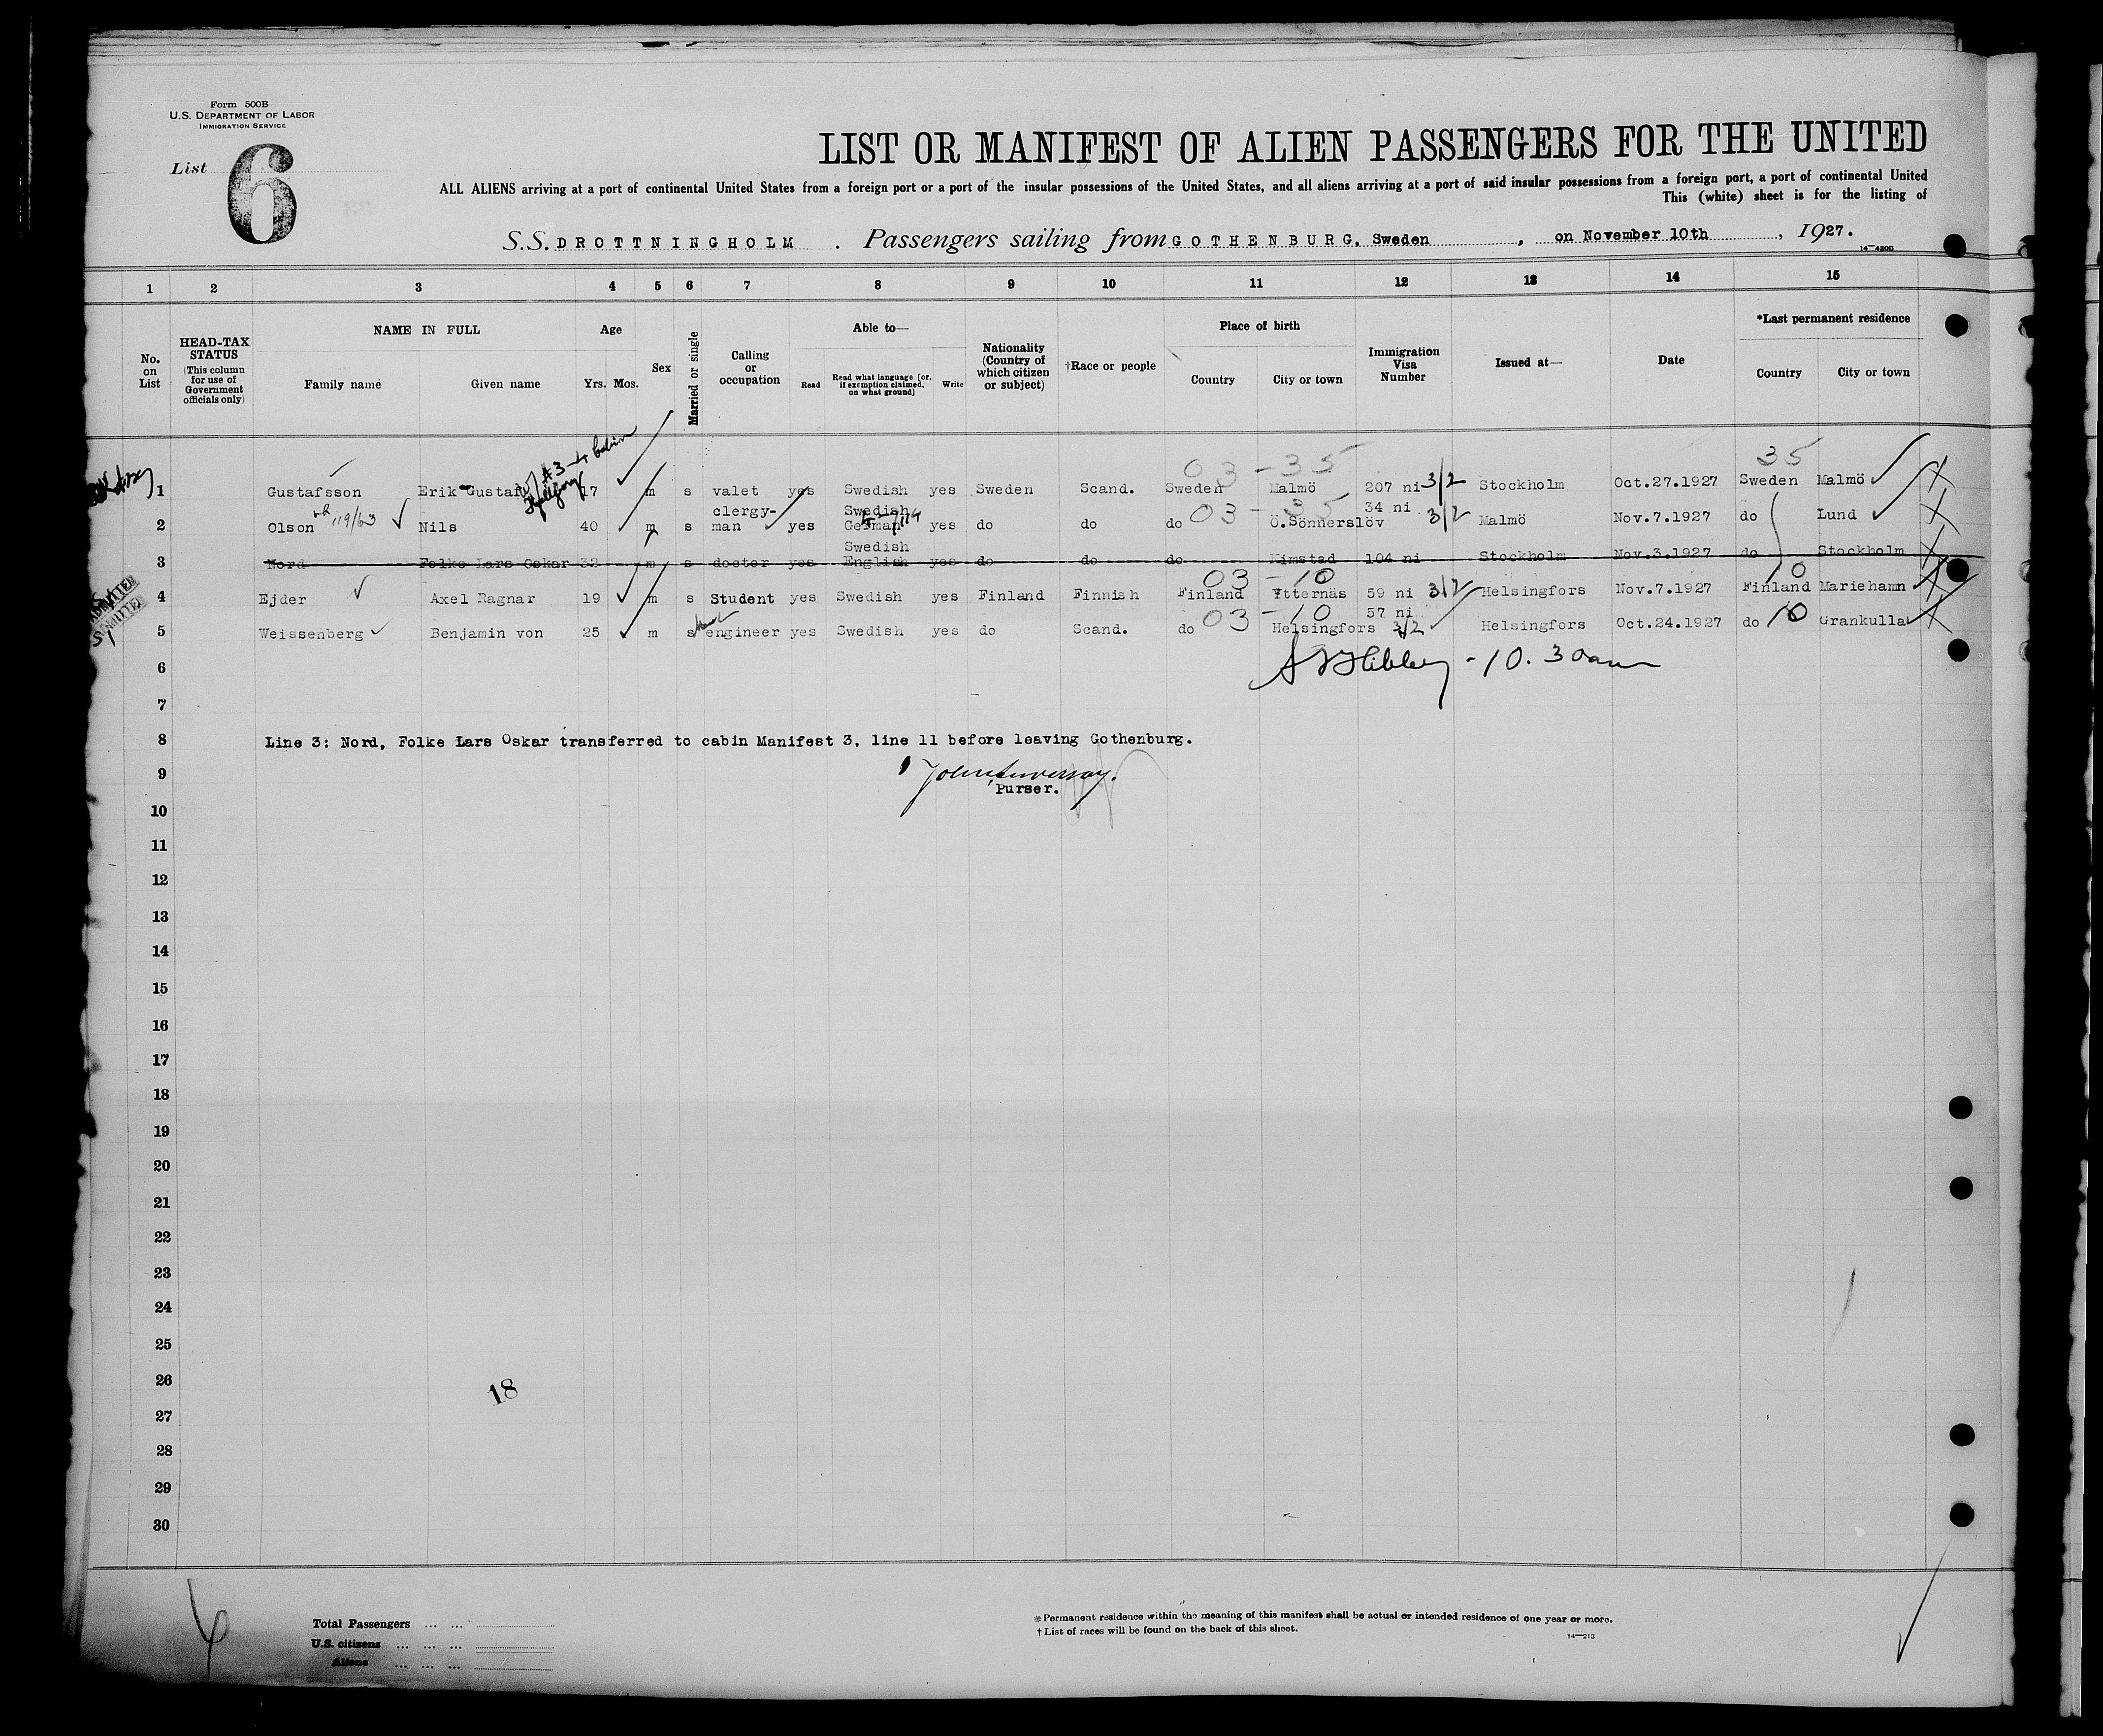 Form 500B
U.S. DEPARTMENT OF LABOR
IMMIGRATION SERVICE
List 6
LIST OR MANIFEST OF ALIEN PASSENGERS FOR THE UNITED
ALL ALIENS arriving at a port of continental United States from a foreign port or a port of the insular possessions of the United States, and all aliens arriving at a port of said insular possessions from a foreign port, a port of continental United
This (white) sheet is for the listing of
S.S. DROTTNINGHOLM . Passengers sailing from GOTHENBURG, Sweden, on November 10th, 1927.
14—430B
1 2 3 4 5 6 7 8 9 10 11 12 13 14 15
No. on List
HEAD-TAX STATUS (This column for use of Government officials only)
NAME IN FULL
Family name Given name
Age
Yrs. Mos.
Sex
Married or single
Calling or occupation
Able to—
Read
Read what language [or, if exemption claimed, on what ground]
Write
Nationality (Country of which citizen or subject)
†Race or people
Place of birth
Country City or town
Immigration Visa Number
Issued at—
Date
*Last permanent residence
Country City or town
#3-4
03 - 35 35
1 Gustafsson Erik Gustaf 17 m s valet yes Swedish yes Sweden Scand. Sweden Malmö 207 ni 3/2 Stockholm Oct.27.1927 Sweden Malmö
2 Olson 119/63 Nils 40 m s clergy-man yes Swedish German yes do do do 03 - 35 Ö.Sönnerslöv 34 ni 3/2 Malmö Nov.7.1927 do Lund
3 Nord Folke Lars Oskar 32 m s doctor yes Swedish English yes do do do Kimstad 104 ni Stockholm Nov.3.1927 do Stockholm
03 - 10 10
4 Ejder Axel Ragnar 19 m s Student yes Swedish yes Finland Finnish Finland Ytternäs 59 ni 3/2 Helsingfors Nov.7.1927 Finland Mariehamn
ADMITTED
ADMITTED
SI
5 Weissenberg Benjamin von 25 m s engineer yes Swedish yes do Scand. do 03 - 10 Helsingfors 57 ni 3/2 Helsingfors Oct.24.1927 do 10 Grankulla
6 - 10.30am
7
8 Line 3: Nord, Folke Lars Oskar transferred to cabin Manifest 3, line 11 before leaving Gothenburg.
9 Purser.
10
11
12
13
14
15
16
17
18
19
20
21
22
23
24
25
26
18
27
28
29
30
Total Passengers ... ...
U.S. citizens ... ... ...
Aliens ... ... ...
* Permanent residence within the meaning of this manifest shall be actual or intended residence of one year or more.
† List of races will be found on the back of this sheet.
14—213